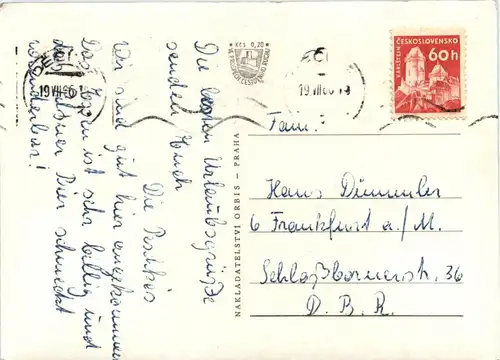 Die besten Urlaubsgrüße
senden Euch
Die Postfix
Wir sind gut hier angekommen
Das Essen ist sehr billig und
das Pilsner Bier schmeckt
wunderbar!
Kčs 0,20
19.VII.66
19.VII.66
ČESKOSLOVENSKO
KARLŠTEJN
60h
NAKLADATELSTVÍ ORBIS - PRAHA
Fam.
Hans Dümmler
6 Frankfurt a/M.
Schloßbornerstr. 36
D. B. R.